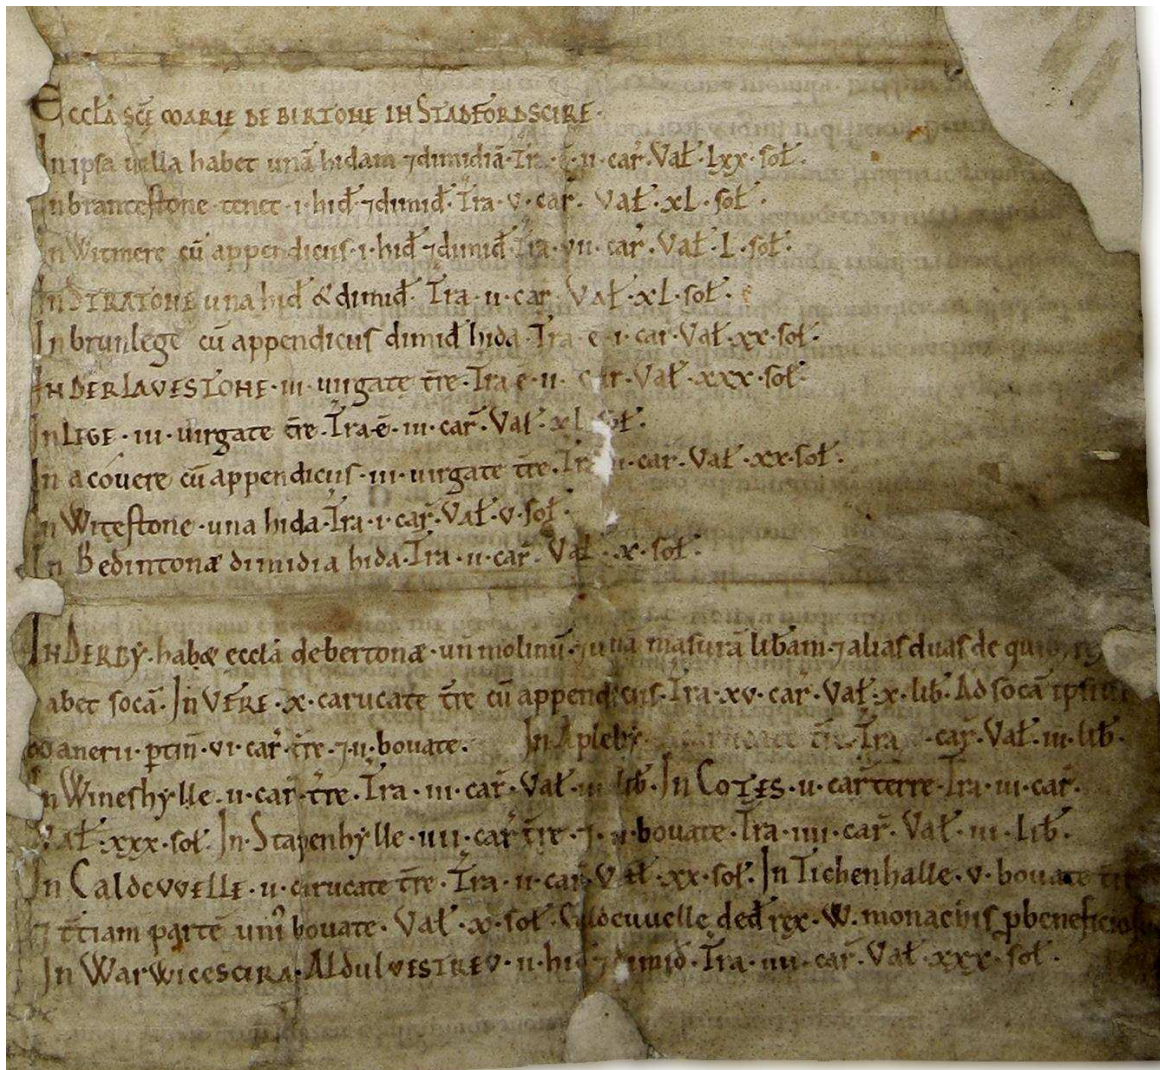 Eccła scē MARIE DE BIRTONE IN STADFORDSCIRE·
In ipsa uilla habet unā hidam ⁊dimidiā·Tra· ē· ii· car̄·Vał·lxx·soł·
In brantestone tenet·i·hiđ·⁊dimiđ·Tra·v·car· Vał·xl·soł·
In Witmere cū appendiciis·i·hiđ ⁊dimiđ·Tra·vii·car̄·Vał·L·soł·
In STRATONE una hiđ & dimiđ·Tra·ii·car·Vał·xl·soł·
In brunlege cū appendiciis dimiđ hida·Tra·ē·i·car·Vał·xx·soł·
IN DERLAVESTONE·iii·uirgate tr̄e·Tra·e·ii·car·Vał·xxx·soł·
In LEGE·iii·uirgate tr̄e·Tra·ē·iii·car̄·Vał·xl·soł·
In acouere cū appendiciis·iii·uirgate tr̄e·Tra ·car·Vał·xx·soł·
In Witestone·una hida·Tra·i·car̄·Vał·v·soł·
In Bedintonæ dimidia hida·Tra·ii·car̄·Vał·x·soł·
IN DERBY·habæ ecclā de bertonæ·un molinū·⁊una masurā libam·⁊alias duas de quib;
abet socā·In VFRE·x·carucate tr̄e cū appendiciis·Tra·xv·car̄·Vał·x·lib̄·Ad socā ipsius
Manerii·ptin̄·vi·car̄·tr̄e·⁊·ii·bouate· In Apleby· carucate tr̄e·Tra ·car̄·Vał·iii·lib̄·
In Wineshylle·ii·car̄·tr̄e·Tra·iii·car̄·Vał· lib̄·In COTES·ii·car̄ terre·Tra·iii·car̄·
Vał·xxx·soł·In Stapenhylle·iiii·car̄ tr̄e·⁊·ii·bouate·Tra·iiii·car̄·Vał·iii·Lib̄·
In Caldevvelle·ii·carucate tr̄e·Tra·ii·car̄·Vał·xx·soł·In Tichenhalle·v·bouate
⁊ t̄ciam partē uni᷒ bouate·Vał·x·soł·Caldeuuelle deđ rex·W·monachis ꝓ beneficio
In Warwicescira·ALdulVESTREV·ii·hiđ ⁊dimiđ·Tra·iiii·car̄·Vał·xxx·soł·